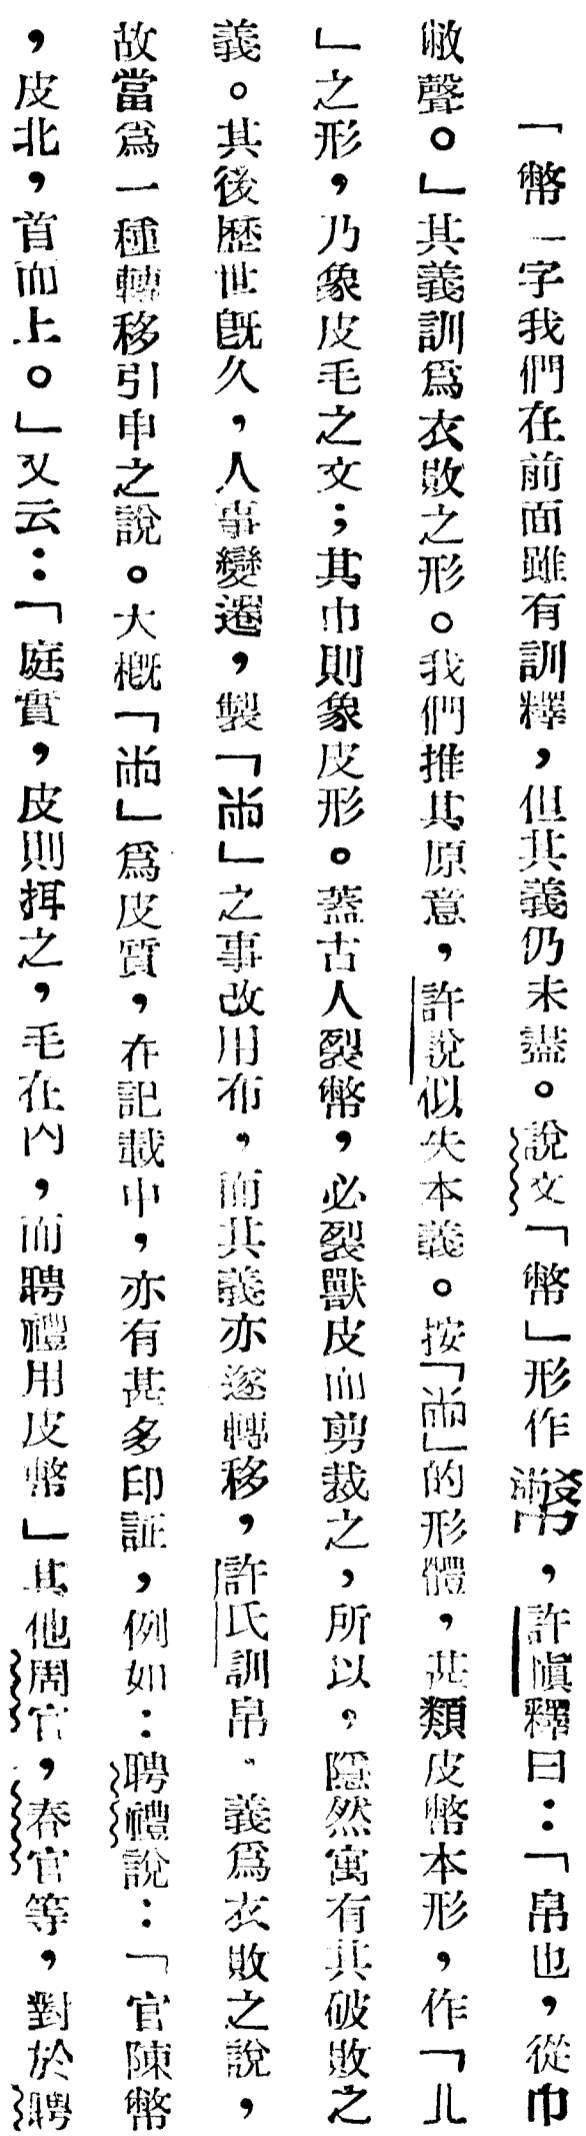 「幣一字我們在前面雖有訓釋，但其義仍未盡。說文「幣」形作幣，許慎釋曰：「帛也，從巾
敝聲。」其義訓爲衣敗之形。我們推其原意，許說似失本義。按「㡀」的形體，甚類皮幣本形，作「八
」之形，乃象皮毛之文；其巾則象皮形。蓋古人裂幣，必裂獸皮而剪裁之，所以，隱然寓有其破敗之
義。其後歷世旣久，人事變遷，製「㡀」之事改用布，而其義亦遂轉移，許氏訓帛。義爲衣敗之說，
故當爲一種轉移引申之說。大槪「㡀」爲皮質，在記載中，亦有甚多印証，例如：聘禮說：「官陳幣
，皮北，首而上。」又云：「庭實，皮則挕之，毛在內，而聘禮用皮幣」其他周官，春官等，對於聘